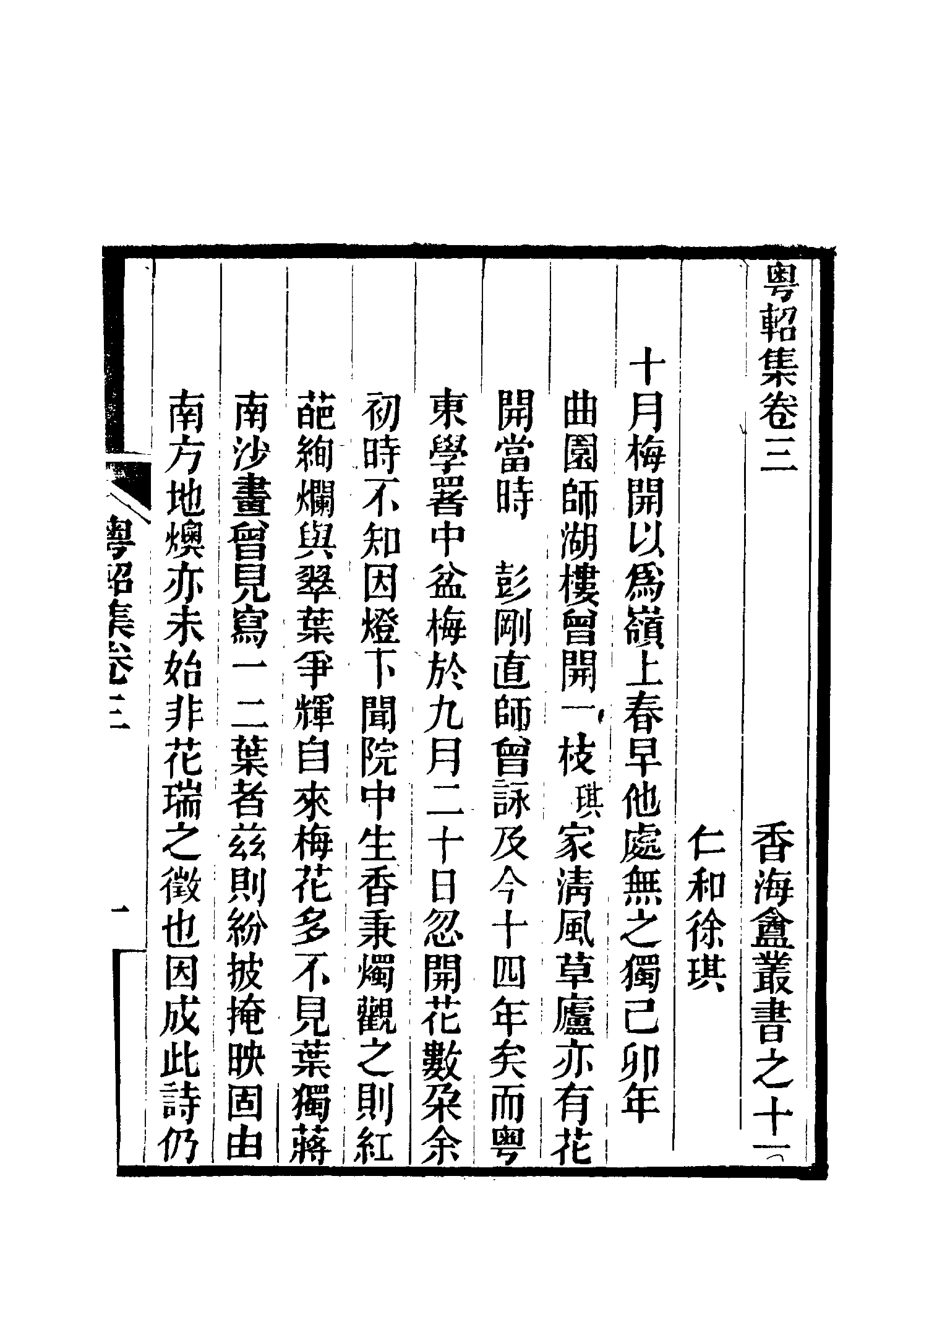 粵軺集卷三
香海盦叢書之十一
仁和徐琪
十月梅開以爲嶺上春早他處無之獨己卯年
曲園師湖樓曾開一枝琪家清風草廬亦有花
開當時　彭剛直師曾詠及今十四年矣而粵
東學署中盆梅於九月二十日忽開花數朶余
初時不知因燈下聞院中生香秉燭觀之則紅
葩絢爛與翠葉爭輝自來梅花多不見葉獨蔣
南沙畫曾見寫一二葉者茲則紛披掩映固由
南方地燠亦未始非花瑞之徵也因成此詩仍
粵軺集卷三
一